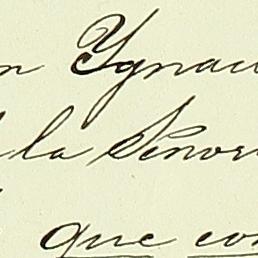 n Ygnaci
la Senor
que con